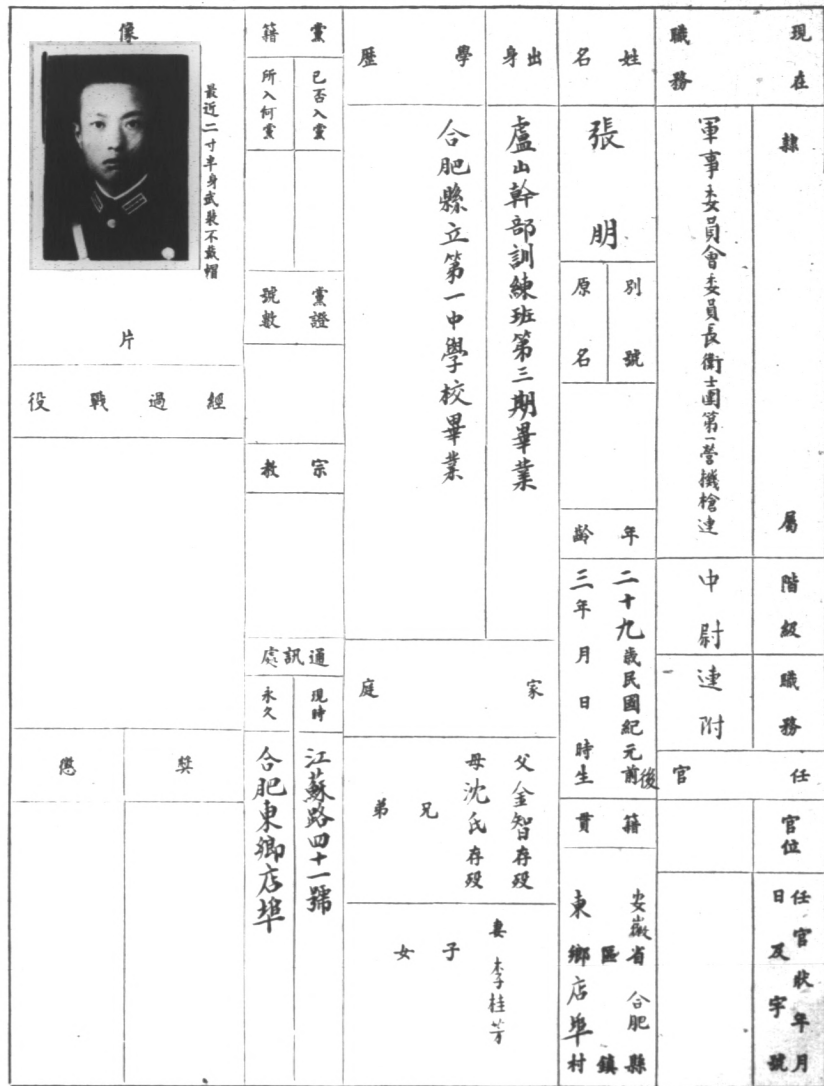 現在職務
隸屬
軍事委員會委員長衛士團第一營機槍連
階級
中尉
職務
連附
任官
官位
任官狀年月日及字號
姓名
張明
別號
原名
年齡
二十九歲民國紀元前後
三年 月 日 時生
籍貫
安徽省 合肥縣
區 鎮
東鄉店埠村
出身
盧山幹部訓練班第三期畢業
學歷
合肥縣立第一中學校畢業
家庭
父金智存歿
母沈氏存歿
兄
弟
妻李桂芳
子
女
黨籍
已否入黨
所入何黨
黨證號數
宗教
通訊處
現時
江蘇路四十一號
永久
合肥東鄉店埠
像片
最近二寸半身武裝不戴帽
經過戰役
獎
懲